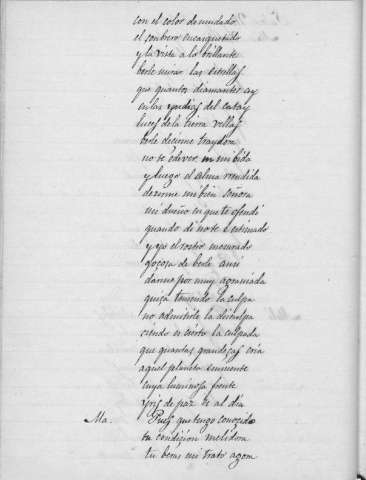 con el color demudado
el sonbrero encasquetado
y la vista a lo brillante
berle mirar las estrellas
que quantos diamantes ay
en las yndias del catay
luces de la tierra vellas
berle decirme traydora
no te e de ver en mi bida
y luego el alma rendida
decirme mi bien señora
mi dueño en que te ofendi
quando de no te e estimado
y yo el rostro mesurado
goçosa de berle ansi
darme por muy agrauiada
quiça teniendo la culpa
no admitirle la disculpa
siendo es cierto la culpada
que quantas grandeças cria
aquel planeta eminente
cuya luminosa frente
yris de paz es al dia
Ma. Pues que tengo conocida
tu condiçion melidrosa
tu beras mi trato agora